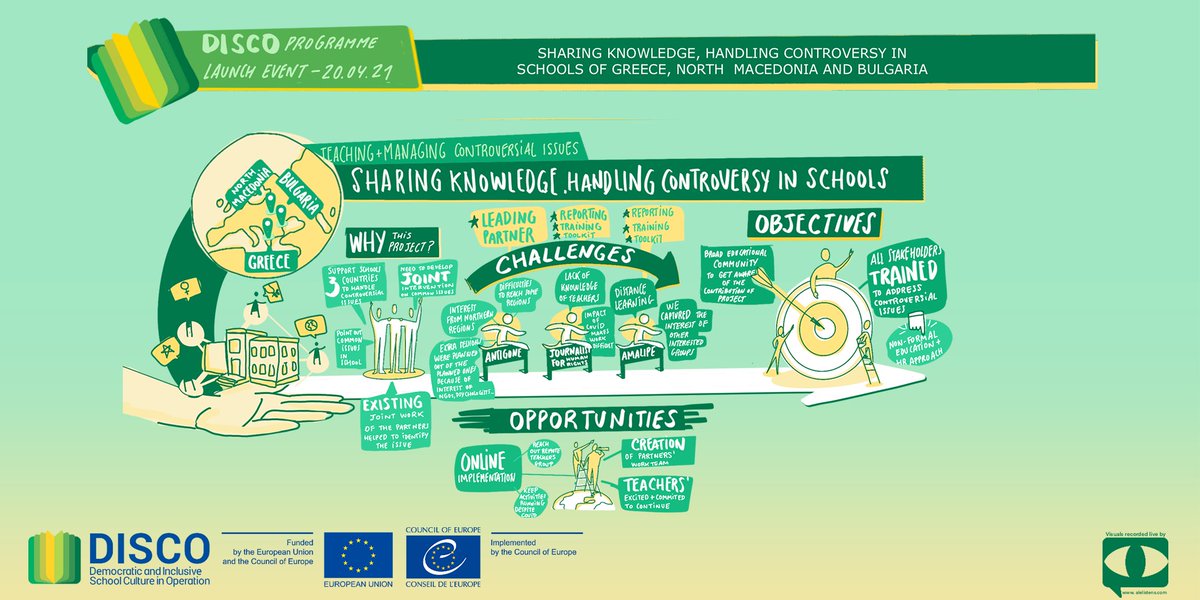 DISCO PROGRAMME
LAUNCH EVENT - 20.04.21
SHARING KNOWLEDGE, HANDLING CONTROVERSY IN
SCHOOLS OF GREECE, NORTH MACEDONIA AND BULGARIA
TEACHING + MANAGING CONTROVERSIAL ISSUES
SHARING KNOWLEDGE, HANDLING CONTROVERSY IN SCHOOLS
NORTH
MACEDONIA
BULGARIA
GREECE
WHY THIS
PROJECT?
SUPPORT SCHOOLS
3 COUNTRIES
TO HANDLE
CONTROVERSIAL
ISSUES
NEED TO DEVELOP
JOINT
INTERVENTION
ON COMMON ISSUES
POINT OUT
COMMON
ISSUES
IN
SCHOOL
EXISTING
JOINT WORK
OF THE PARTNERS
HELPED TO IDENTIFY
THE ISSUE
LEADING
PARTNER
REPORTING
TRAINING
TOOLKIT
REPORTING
TRAINING
TOOLKIT
CHALLENGES
DIFFICULTIES
TO REACH SOME
REGIONS
LACK OF
KNOWLEDGE
OF TEACHERS
DISTANCE
LEARNING
INTEREST
FROM NORTHERN
REGIONS
IMPACT
OF
COVID
MAKES
WORK
DIFFICULT
WE
CAPTURED THE
INTEREST OF
OTHER
INTERESTED
GROUPS
WERE PLANNED
OUT OF THE
PLANNED ONES
BECAUSE OF
INTEREST OF
ANTIGONE
JOURNALIST
FOR HUMAN
RIGHTS
AMALIPE
OBJECTIVES
BROAD EDUCATIONAL
COMMUNITY
TO GET AWARE
OF THE
CONTRIBUTION OF
PROJECT
ALL STAKEHOLDERS
TRAINED
TO ADDRESS
CONTROVERSIAL
ISSUES
NON-FORMAL
EDUCATION +
HR APPROACH
OPPORTUNITIES
ONLINE
IMPLEMENTATION
REACH
OUT REMOTE
TEACHERS
GROUP
KEEP
ACTIVITIES
RUNNING
DESPITE
COVID
CREATION
OF PARTNERS'
WORK TEAM
TEACHERS'
EXCITED + COMMITED
TO CONTINUE
DISCO
Democratic and Inclusive
School Culture in Operation
Funded
by the European Union
and the Council of Europe
EUROPEAN UNION
COUNCIL OF EUROPE
CONSEIL DE L'EUROPE
Implemented
by the Council of Europe
Visuals recorded live by
www.alelistens.com